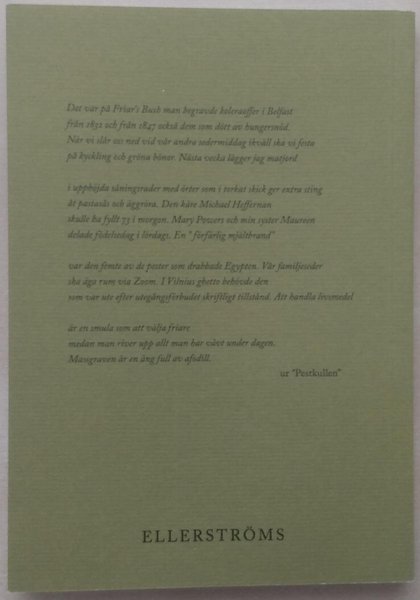 Det var på Friar's Bush man begravde koleraoffer i Belfast
från 1832 och från 1847 också dem som dött av hungersnöd.
När vi slår oss ned vid vår andra sedermiddag ikväll ska vi festa
på kyckling och gröna bönor. Nästa vecka lägger jag matjord
i upphöjda såningsrader med örter som i torkat skick ger extra sting
åt pastasås och äggröra. Den käre Michael Heffernan
skulle ha fyllt 73 i morgon. Mary Powers och min syster Maureen
delade födelsedag i lördags. En "förfärlig mjältbrand"
var den femte av de pester som drabbade Egypten. Vår familjeseder
ska äga rum via Zoom. I Vilnius ghetto behövde den
som var ute efter utegångsförbudet skriftligt tillstånd. Att handla livsmedel
är en smula som att välja friare
medan man river upp allt man har vävt under dagen.
Massgraven är en äng full av afodill.
ur "Pestkullen"
ELLERSTRÖMS